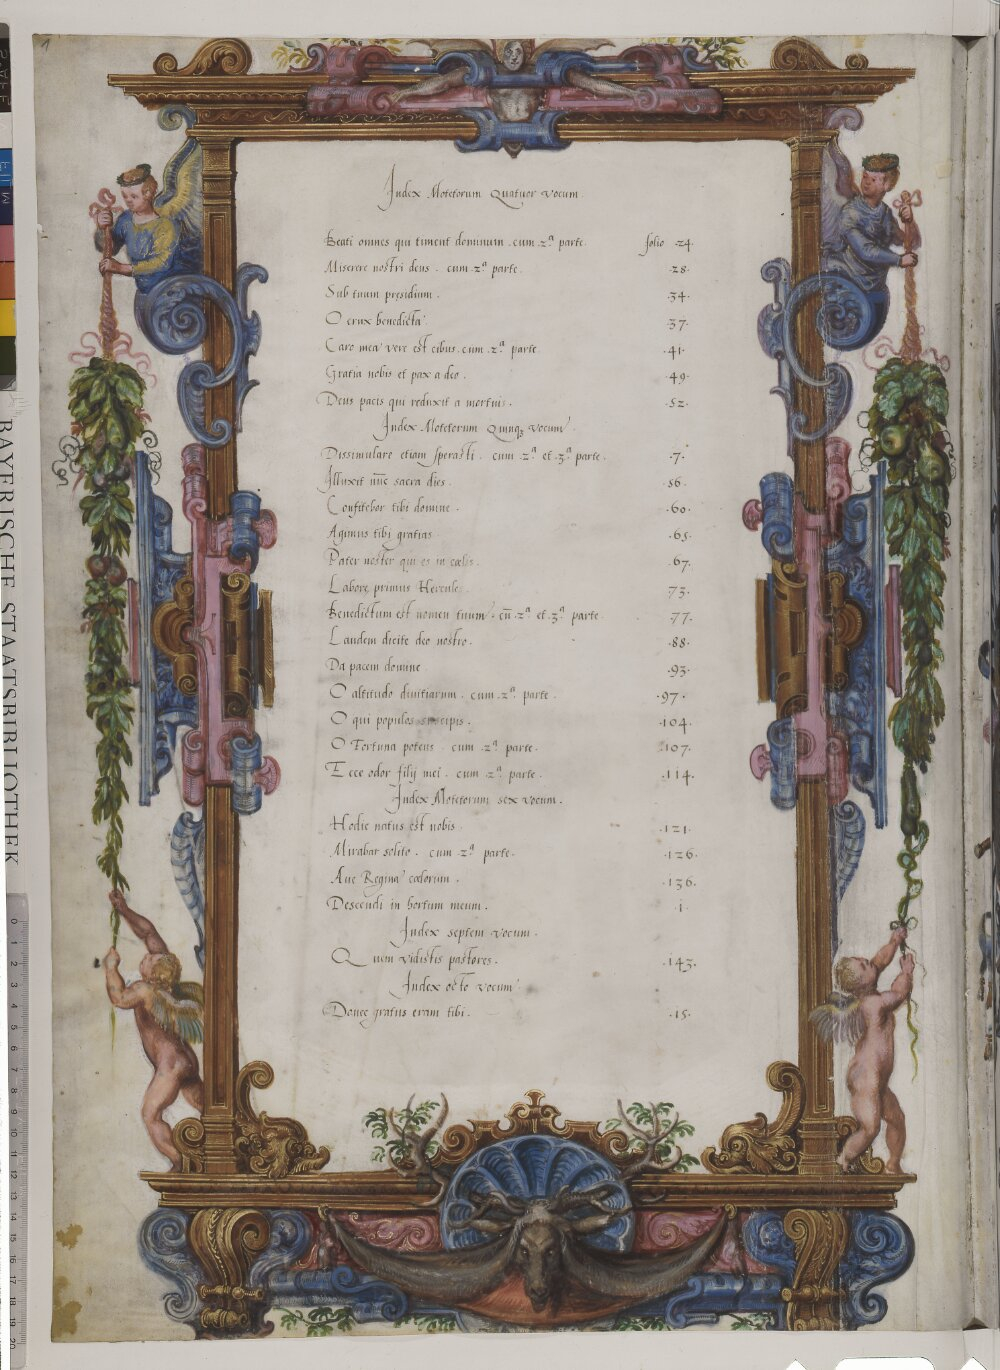 1
Index Motetorum Quatuor vocum
Beati omnes qui timent dominum. cum. 2ª parte. folio .24.
Miserere nostri deus. cum. 2ª parte. .28.
Sub tuum presidium. .34.
O crux benedicta. .37.
Caro mea vere est cibus. cum. 2ª parte. .41.
Gratia nobis et pax a deo. .49.
Deus pacis qui reduxit a mortuis. .52.
Index Motetorum Quinqꝫ vocum.
Dissimulare etiam sperasti. cum .2ª et .3ª parte. .7.
Illuxit nūc sacra dies. .56.
Confitebor tibi domine. .60.
Agimus tibi gratias .65.
Pater noster qui es in cœlis. .67.
Labore primus Hercules. .73.
Benedictum est nomen tuum. cū .2ª et .3ª parte .77.
Laudem dicite deo nostro. .88.
Da pacem domine. .93.
O altitudo divitiarum. cum .2ª parte. .97.
O qui populos suscipis. .104.
O Fortuna potens. cum .2ª parte. .107.
Ecce odor filij mei. cum .2ª parte. .114.
Index Motetorum sex vocum.
Hodie natus est nobis. .121.
Mirabar solito. cum .2ª parte. .126.
Aue Regina cœlorum. .136.
Descendi in hortum meum. .1.
Index septem vocum.
Quem vidistis pastores. .143.
Index octo vocum
Donec gratus eram tibi. .15.
BAYERISCHE STAATSBIBLIOTHEK
0 1 2 3 4 5 6 7 8 9 10 11 12 13 14 15 16 17 18 19 20